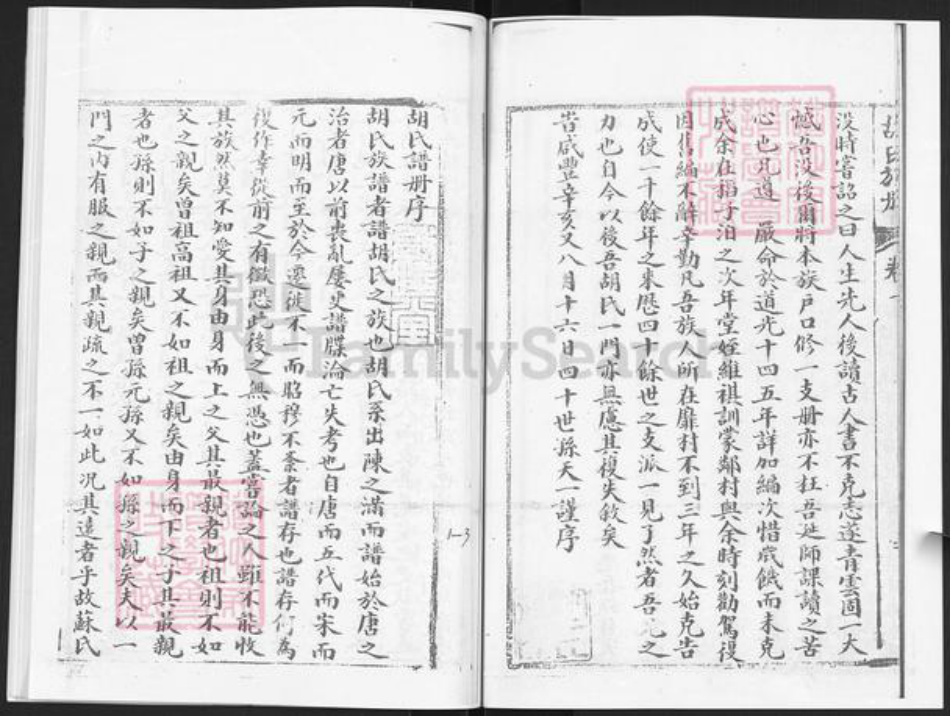 胡氏族册 卷一
没時嘗詔之曰人生先人後讀古人書不克志遂青雲固一大
憾吾没後爾將本族戶口修一支册亦不枉吾延師課讀之苦
心也凡遵 嚴命於道光十四五年詳加編次惜歲饑而未克
成余在稻子泪之次年堂姪維祺訓蒙鄰村與余時刻勸駕復
因舊編不辭辛勤凡吾族人所在靡村不到三年之久始克告
成使一千餘年之来歷四十餘世之支派一見了然者吾 之
力也自今以後吾胡氏一門亦無慮其複失敘矣
峕咸豐辛亥又八月十六日四十世孫天一謹序
胡氏譜册序
胡氏族譜者譜胡氏之族也胡氏系出陳之滿而譜始於唐之
治者唐以前喪亂屢更譜牒淪亡失考也自唐而五代而宋而
元而明而至於今遷徙不一而昭穆不紊者譜存也譜存何為
復作幸從前之有徵恐此後之無憑也蓋嘗論之人雖不能收
其族然莫不知愛其身由身而上之父其最親者也祖則不如
父之親矣曾祖高祖又不如祖之親矣由身而下之子其最親
者也孫則不如子之親矣曾孫元孫又不如孫之親矣夫以一
門之内有服之親而其親疏之不一如此况其遠者乎故蘇氏
1-3
FamilySearch